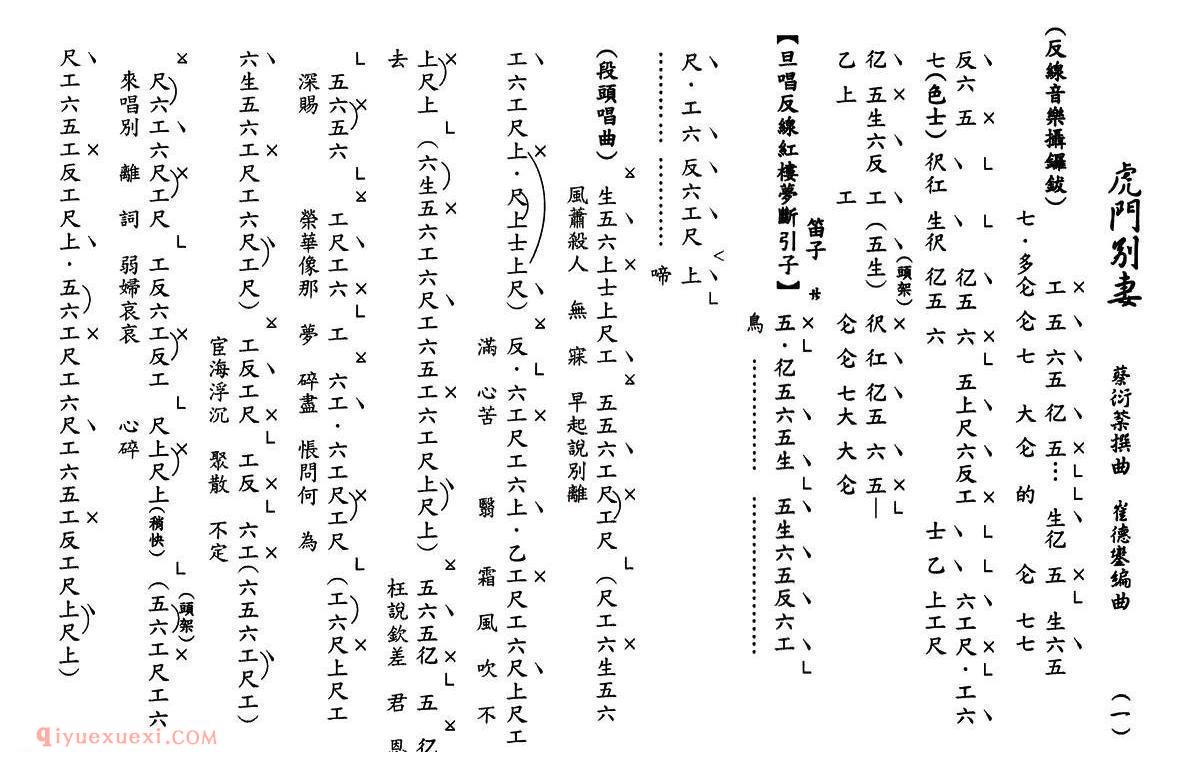 虎門別妻 蔡衍棻撰曲 崔德鑾編曲 (一)
(反線音樂攝鑼鈸) 工五六五伬五…生伬五生六五
七·多仑仑七大仑的仑七七
反六五 伬五六五上尺六反工 六工尺·工六
七(色士)伬仜生伬伬五六 士乙上工尺
伬五生六反工(五生)(頭架)伬仜伬五六五—
乙上工仑仑七大大仑
【旦唱反線紅樓夢斷引子】笛子 廿 五·伬五六五生 五生六五反六工
鳥………………
尺·工六反六工尺上
………………啼
(段頭唱曲)生五六上士上尺工五五六工尺工尺(尺工六生五六
風蕭殺人無寐早起說別離
工六工尺上·尺上士上尺)反·六工尺工六上·乙工尺工六尺上尺工
滿心苦翳霜風吹不
上尺上(六生五六工六尺工六五工六工尺上尺上)五六五伬五伬
去 枉說欽差君恩
五六五六工尺工六工六工·六工尺工尺(工六尺上尺工
深賜榮華像那夢碎盡悵問何為
六生五六工尺工六尺工尺)工反工尺工反六工(六五六工尺工)
宦海浮沉聚散不定
尺六工六尺工尺工反六工反工尺上尺上(稍快)(頭架)(五六工尺工六
來唱別離詞弱婦哀哀心碎
尺工六五工反工尺上·五六工尺工六尺工六五工反工尺上尺上)
qiyuexuexi.COM